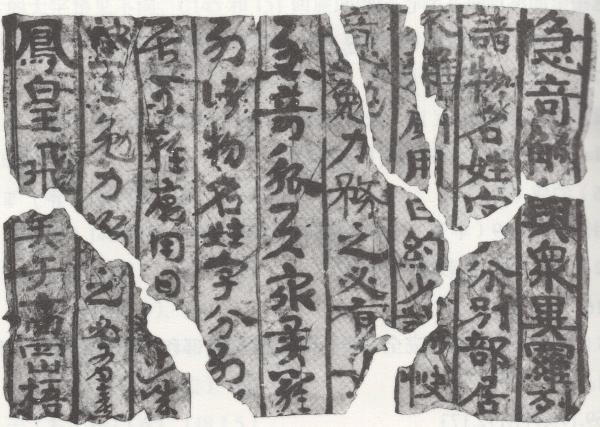 急奇觚與衆異羅列
諸物名姓字分別部居
雜廁用日約少誠快
意勉力務之必有
急奇觚與衆異羅
列諸物名姓字分別
居不雜廁用日誠
快意勉力務之必有喜
鳳皇飛矣于高岡梧